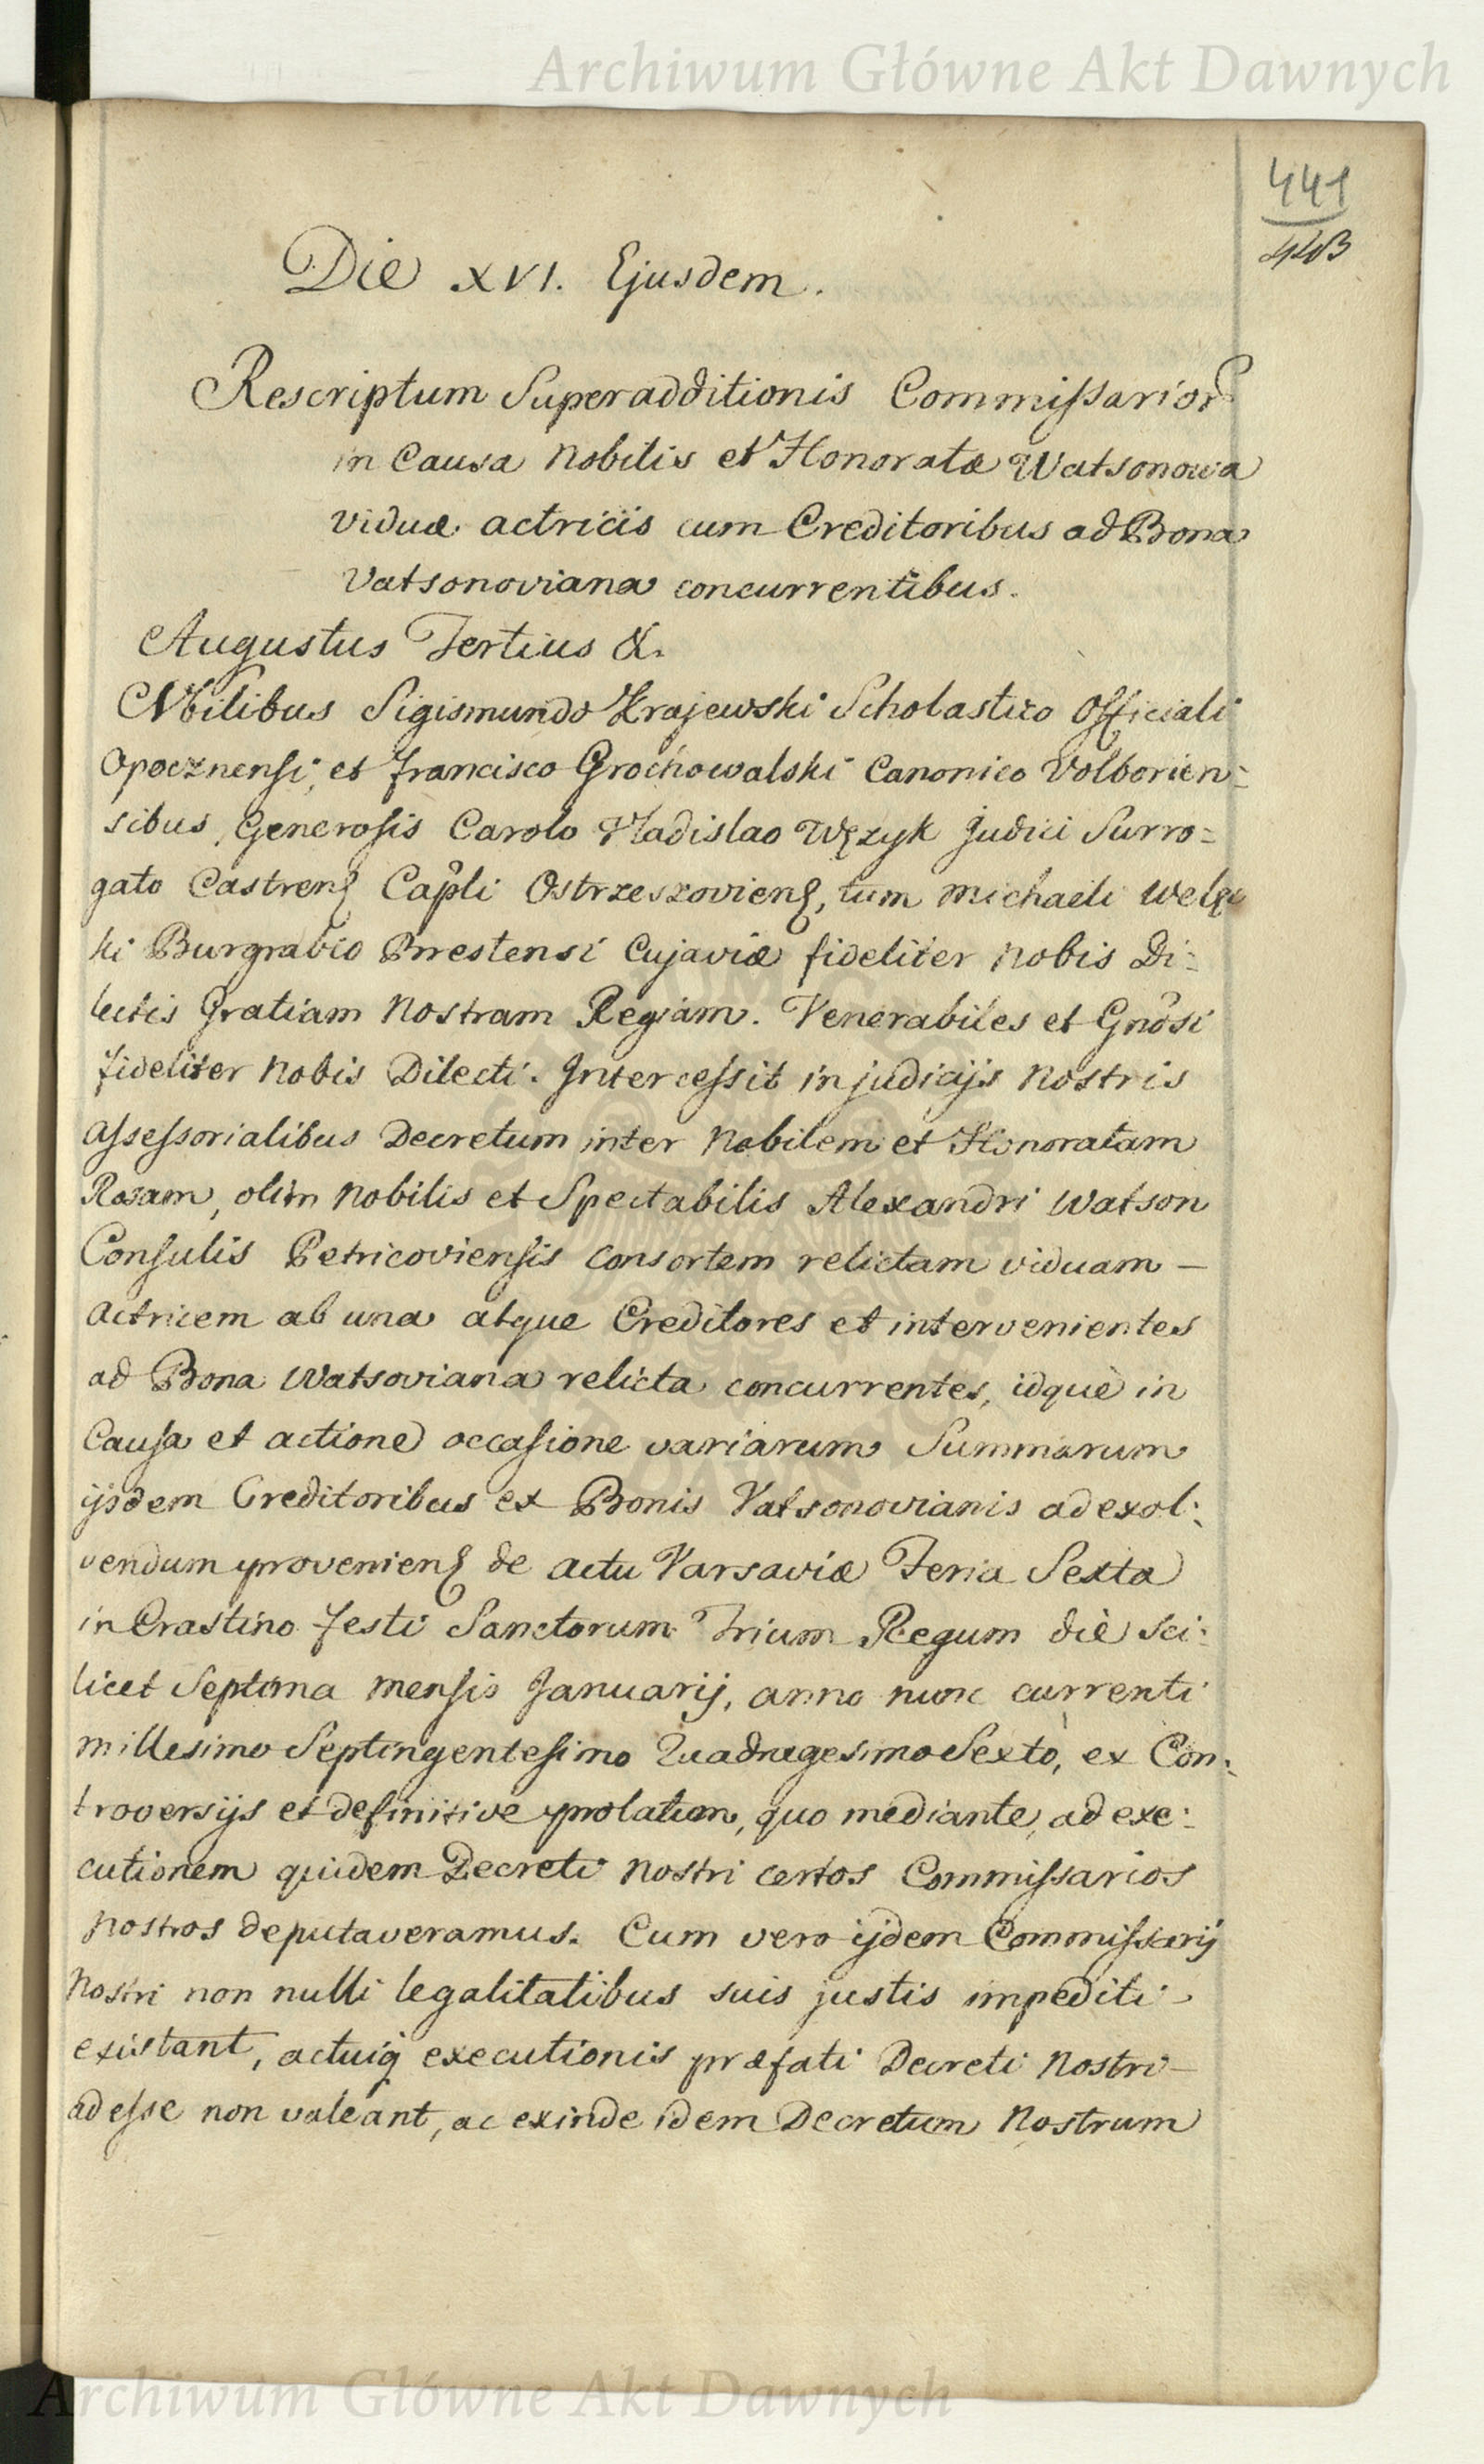 Archiwum Główne Akt Dawnych
441
443
Die XVI. Ejusdem.
Rescriptum Superadditionis Commissarior
in Causa Nobilis et Honoratæ Watsonowa
viduæ actricis cum Creditoribus ad Bona
Vatsonoviana concurrentibus.
Augustus Tertius &.
Nobilibus Sigismundo Krajewski Scholastico Officiali
Opocznensi, et Francisco Grochowalski Canonico Volborien=
sibus, Generosis Carolo Vladislao Wężyk Judici Surro=
gato Castren Capli Ostrzeszovien, tum Michaeli
ki Burgrabio Brestensi Cujaviæ fideliter nobis Di=
lectis Gratiam Nostram Regiam. Venerabiles et Gnosi
fideliter Nobis Dilecti. Intercessit in judicijs Nostris
Assessorialibus Decretum inter Nobilem et Honoratam
Rosam, olim Nobilis et Spectabilis Alexandri Watson
Consulis Petricoviensis consortem relictam viduam —
Actricem ab una atque Creditores et intervenientes
ad Bona Watsoviana relicta concurrentes, idque in
Causa et actione occasione variarum Summarum
ijsdem Creditoribus ex Bonis Vatsonovianis ad exol:
vendum provenien de actu Varsaviæ Feria Sexta
in Crastino festi Sanctorum Trium Regum die sci:
licet Septima mensis Januarij, anno nunc currenti
millesimo Septingentesimo Quadragesimo Sexto, ex Con:
troversijs et definitive prolatum, quo mediante, ad exe:
cutionem quidem Decreti Nostri certos Commissarios
Nostros deputaveramus. Cum vero ijdem Commissarij
Nostri non nulli legalitatibus suis justis impediti
existant, actuiq executionis præfati Decreti Nostri —
adesse non valeant, ac exinde idem Decretum Nostrum
Archiwum Główne Akt Dawnych